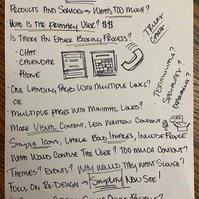 Products and Services → What's Too Much?
Who is the Primary User?
Is There an Easier Booking Process?
• Chat
• Calendar
• Phone
Trust
One Landing Page With Multiple Links?
or
Multiple Pages with Minimal Links?
More Visual Content, Less Written Content
Simple Icons, Large Bold Images, Include People
What Would Confuse The User? Too Much Content?
Themes? Events? Why Would They Want
Focus on Re-Design → Simplify New Site!
Terminology?
Specialties?